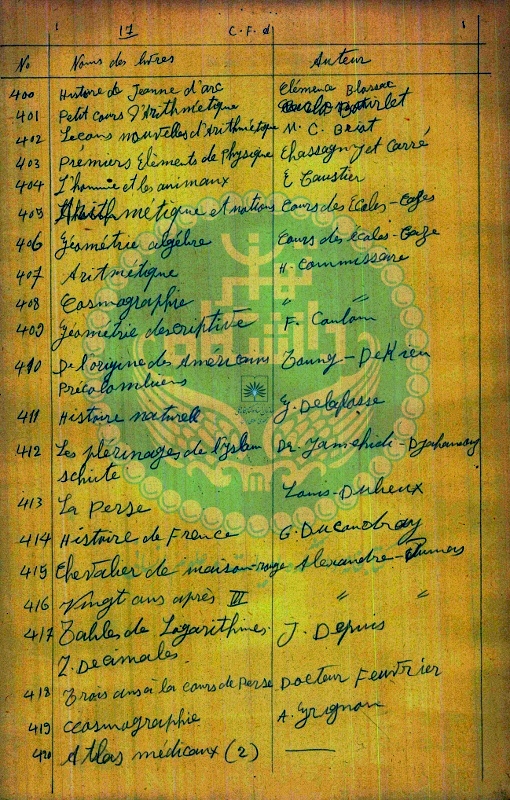 17 C.F.d 1
No Noms des livres Auteur
400 Histoire de Jeanne d'arc Clémence Blassac
401 Petit cours d'Arithmetique Bourlet
402 Lecons nouvelles d'Arithmétique M. C. Briot
403 Premiers Eléments de Physique Chassagny et Carré
404 L'homme et les animaux E Caustier
405 Arithmétique et notions Cours des Ecoles-Cages
406 Géométrie algébre Cours des écoles-Cage
407 Aritmétique H. Commissaire
408 Cosmographie " "
409 Géométrie descriptive F.
410 De l'origine des Americains
Précolombiens
411 Histoire naturell
412 Les plérinages de l'Yslam Dr.
schiite
413 La Perse Louis-Dubeux
414 Histoire de France G. Ducoudray
415 Chevalier de maison-rouge Alexandre-Dumas
416 Vingt ans après III " "
417 Tables de Logarithmes J. Depuis
7. Decimales.
418 Trois ans à la cours de Perse Docteur Feuvrier
419 ccosmographie A. Grignon
420 Atlas médicaux (2) —